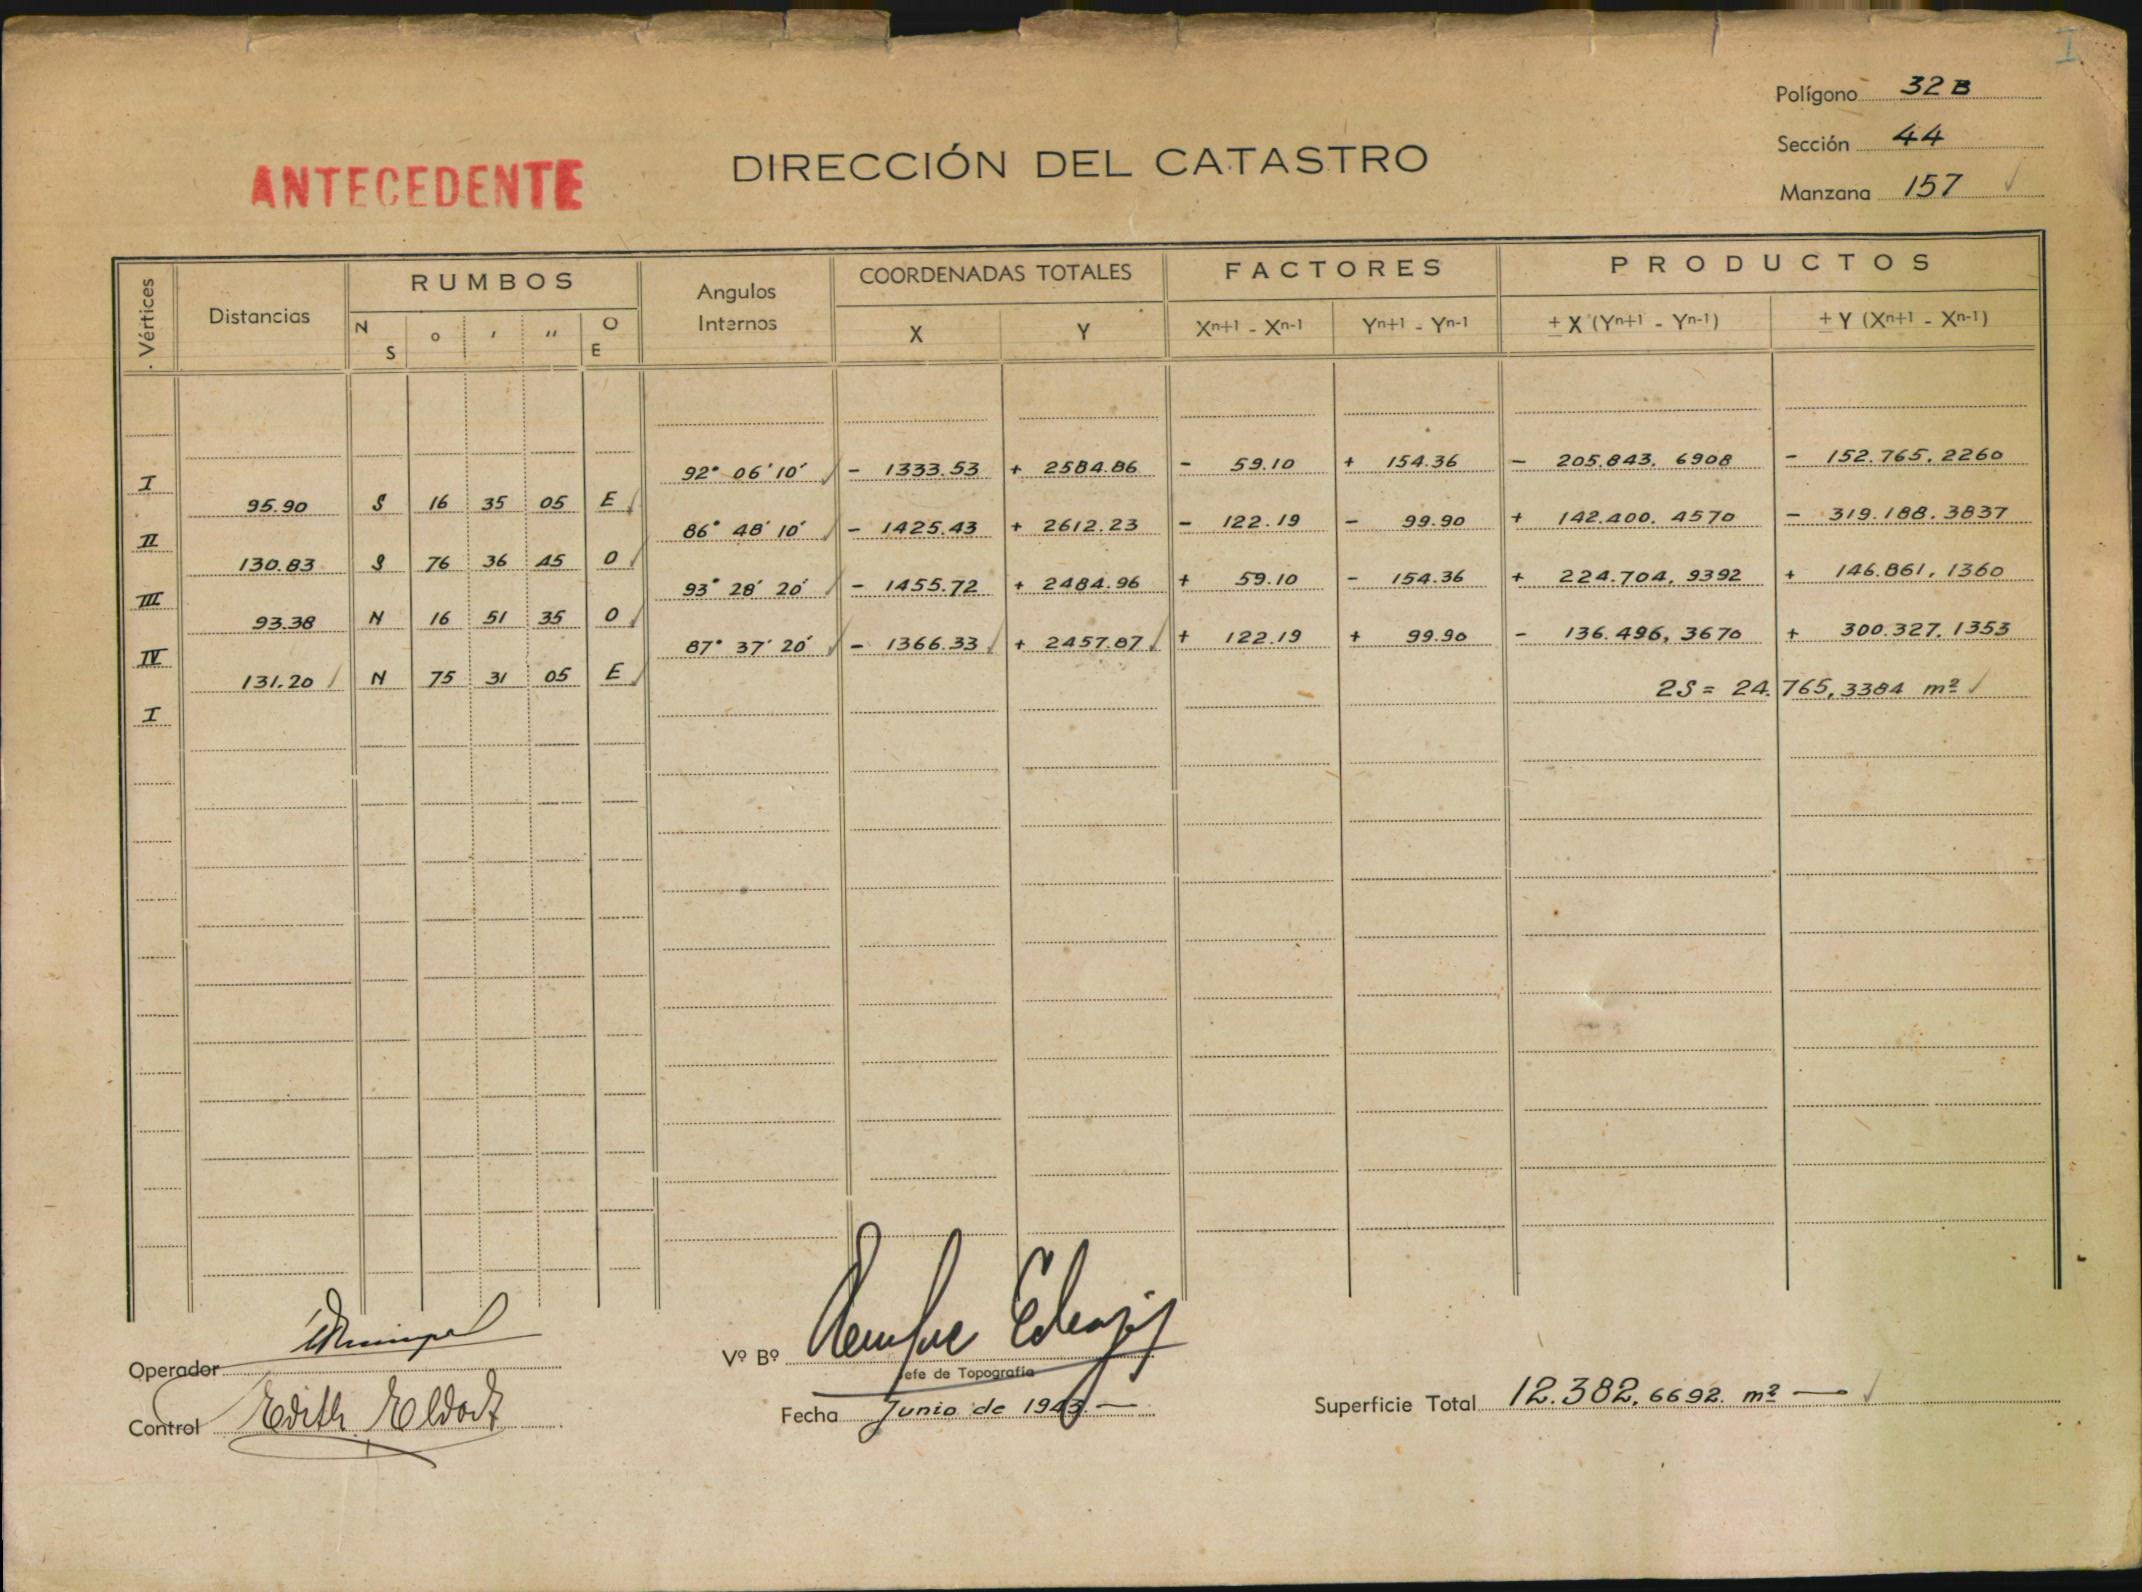 I
Polígono 32 B
Sección 44
Manzana 157
ANTECEDENTE
DIRECCIÓN DEL CATASTRO
Vértices
Distancias
RUMBOS
N S
o
'
"
O E
Angulos Internos
COORDENADAS TOTALES
X
Y
FACTORES
Xn+1 - Xn-1
Yn+1 - Yn-1
PRODUCTOS
± X (Yn+1 - Yn-1)
± Y (Xn+1 - Xn-1)
I 92° 06' 10' - 1333.53 + 2584.86 - 59.10 + 154.36 - 205.843, 6908 - 152.765, 2260
95.90 S 16 35 05 E
II 86° 48' 10' - 1425.43 + 2612.23 - 122.19 - 99.90 + 142.400, 4570 - 319.188.3837
130.83 S 76 36 45 O
III 93° 28' 20' - 1455.72 + 2484.96 + 59.10 - 154.36 + 224.704, 9392 + 146.861, 1360
93.38 N 16 51 35 O
IV 87° 37' 20' - 1366.33 + 2457.87 + 122.19 + 99.90 - 136.496, 3670 + 300.327, 1353
131.20 N 75 31 05 E
2S = 24.765, 3384 m²
I
Operador
Control Edith
Vº Bº
Jefe de Topografía
Fecha Junio de 1943.—
Superficie Total 12.382, 6692. m² —